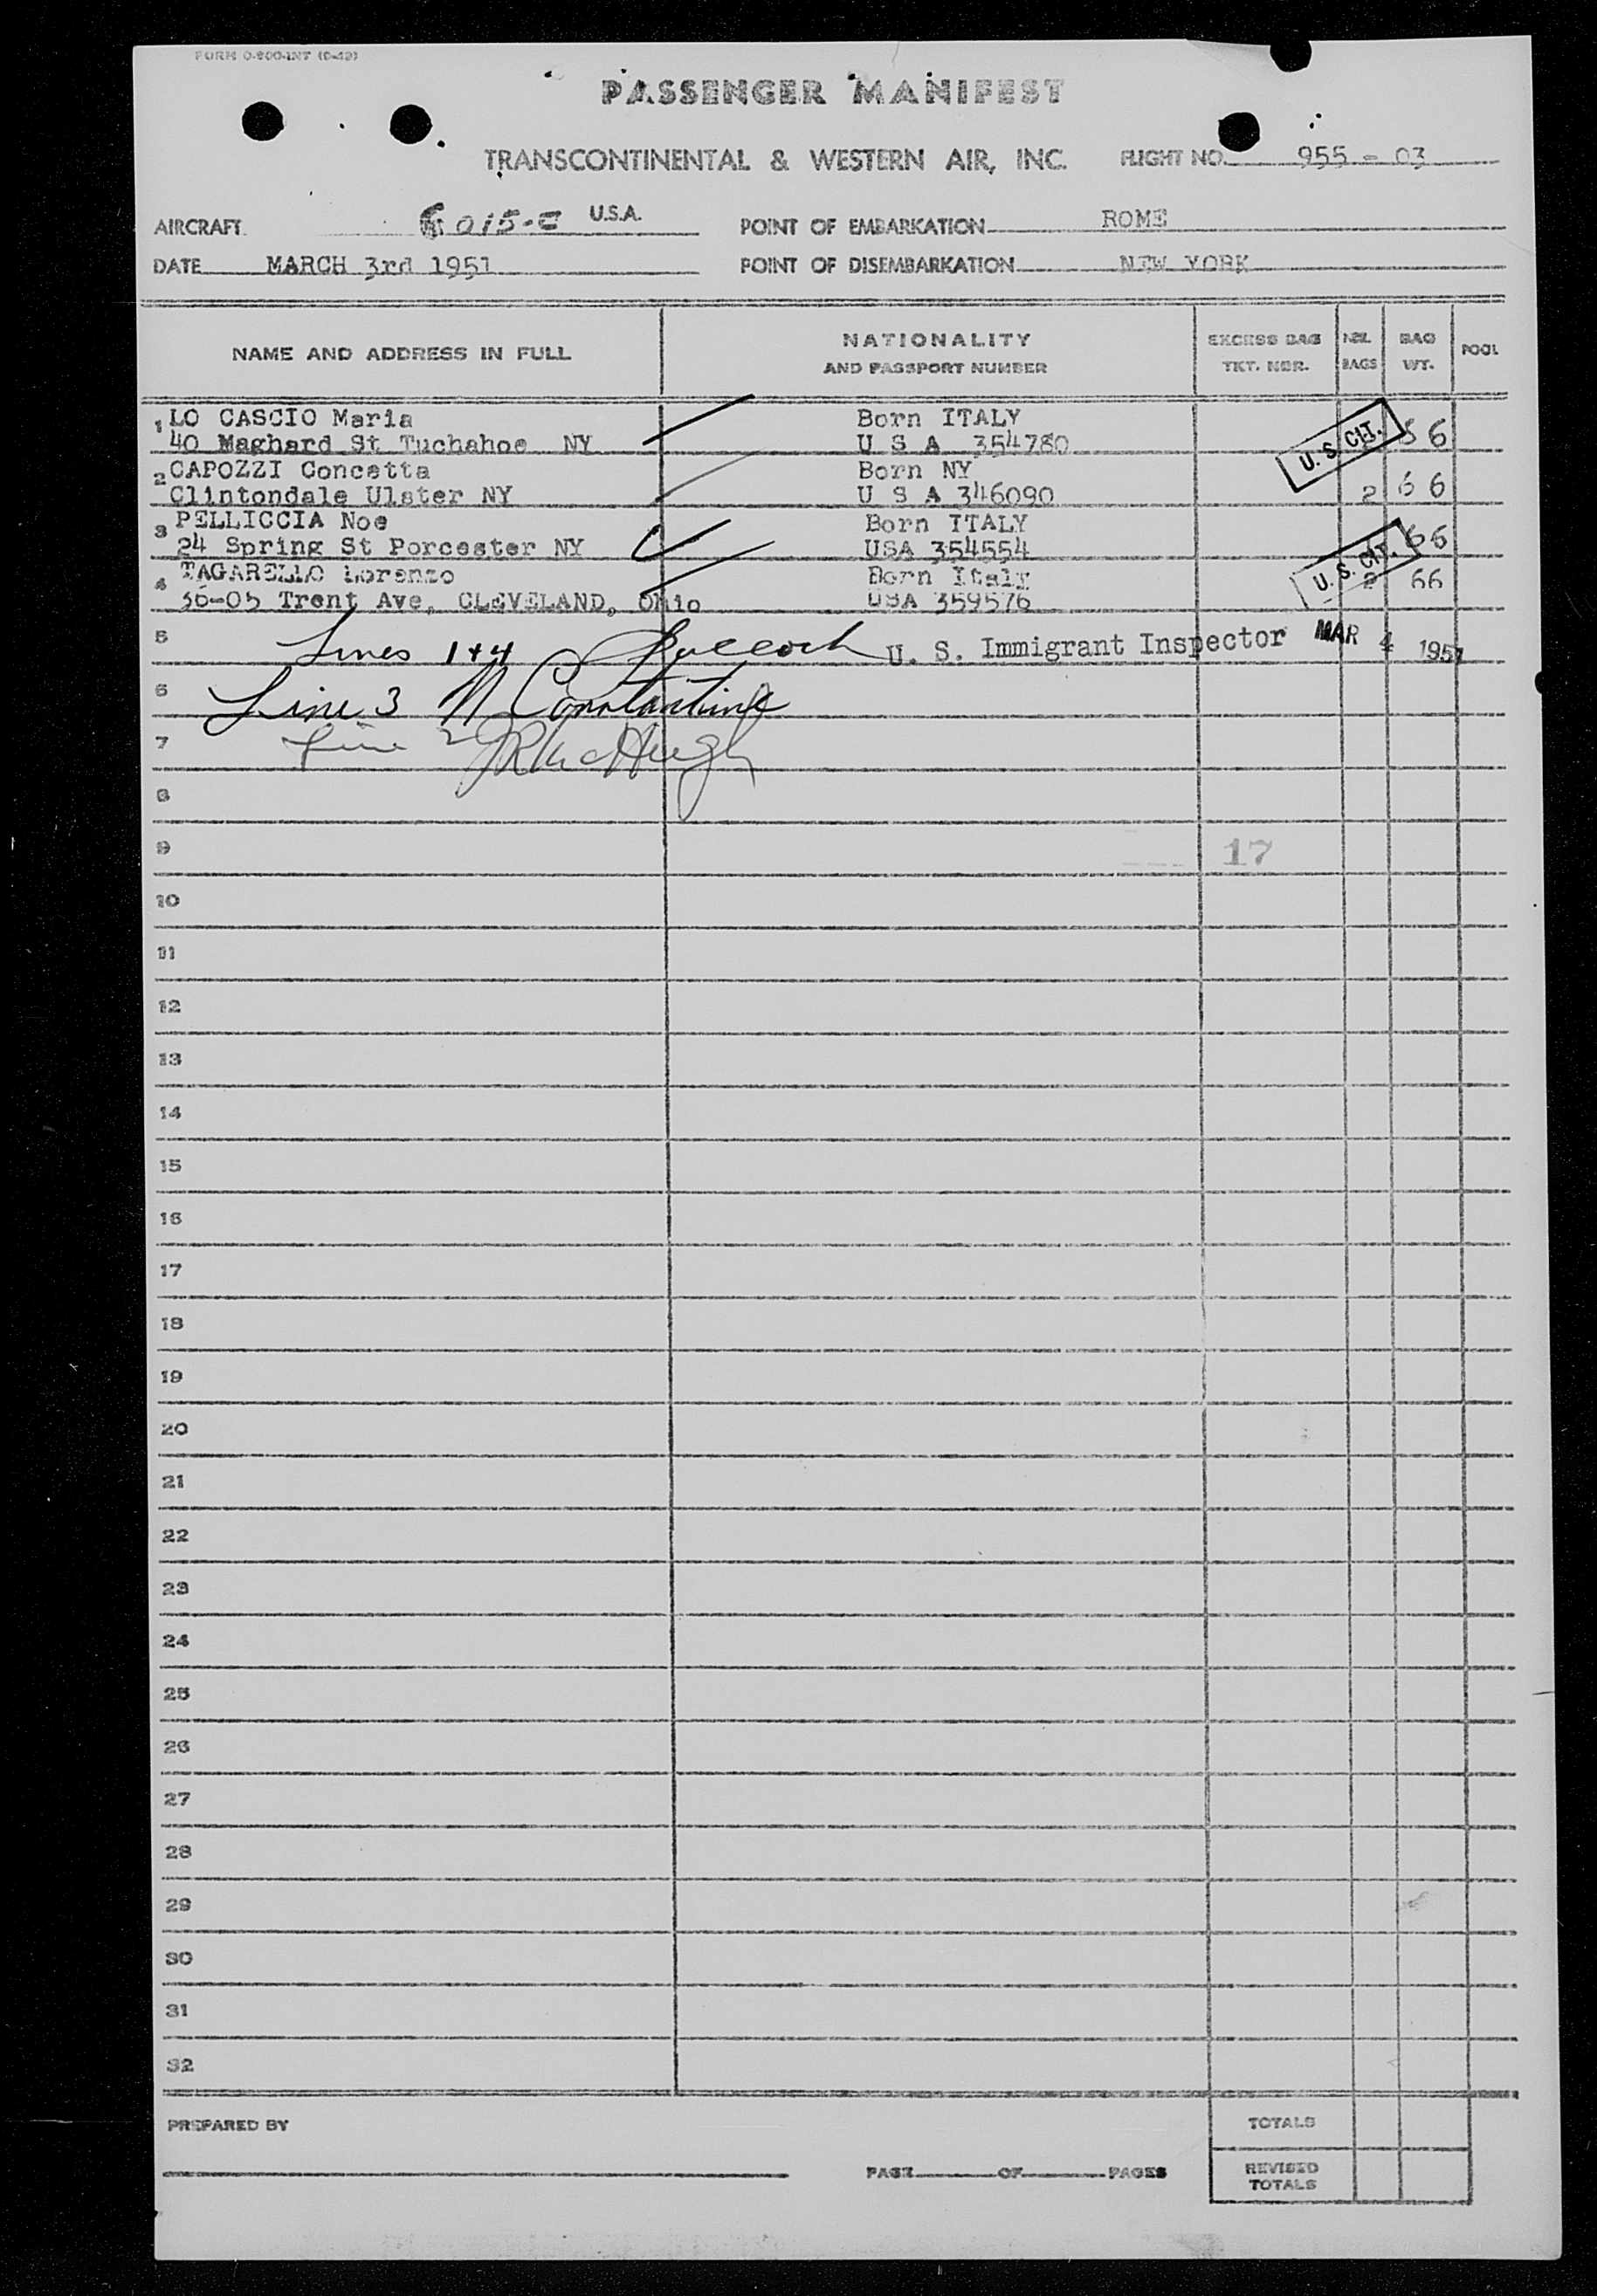 FORM O-800-INT
PASSENGER MANIFEST
TRANSCONTINENTAL & WESTERN AIR, INC. FLIGHT NO. 955 - 03
AIRCRAFT 6015-C U.S.A. POINT OF EMBARKATION ROME
DATE MARCH 3rd 1951 POINT OF DISEMBARKATION NEW YORK
NAME AND ADDRESS IN FULL NATIONALITY AND PASSPORT NUMBER EXCESS BAG TKT. NBR. NBR. BAGS BAG WT. POOL
1 LO CASCIO Maria Born ITALY
40 Maghard St Tuchahoe NY U S A 354780 U. S. CIT.
2 CAPOZZI Concetta Born NY
Clintondale Ulster NY U S A 346090 2 66
3 PELLICCIA Noe Born ITALY
24 Spring St Porcester NY USA 354554 66
4 TAGARELLO Lorenzo Born Italy U. S. CIT. 2 66
36-05 Trent Ave, CLEVELAND, Ohio USA 359576
5 Lines 1+4 U. S. Immigrant Inspector MAR 4 1951
6 Line 3 N Constantine
7 Line 2 JR McHugh
8
9 17
10
11
12
13
14
15
16
17
18
19
20
21
22
23
24
25
26
27
28
29
30
31
32
PREPARED BY TOTALS
PAGE OF PAGES REVISED TOTALS